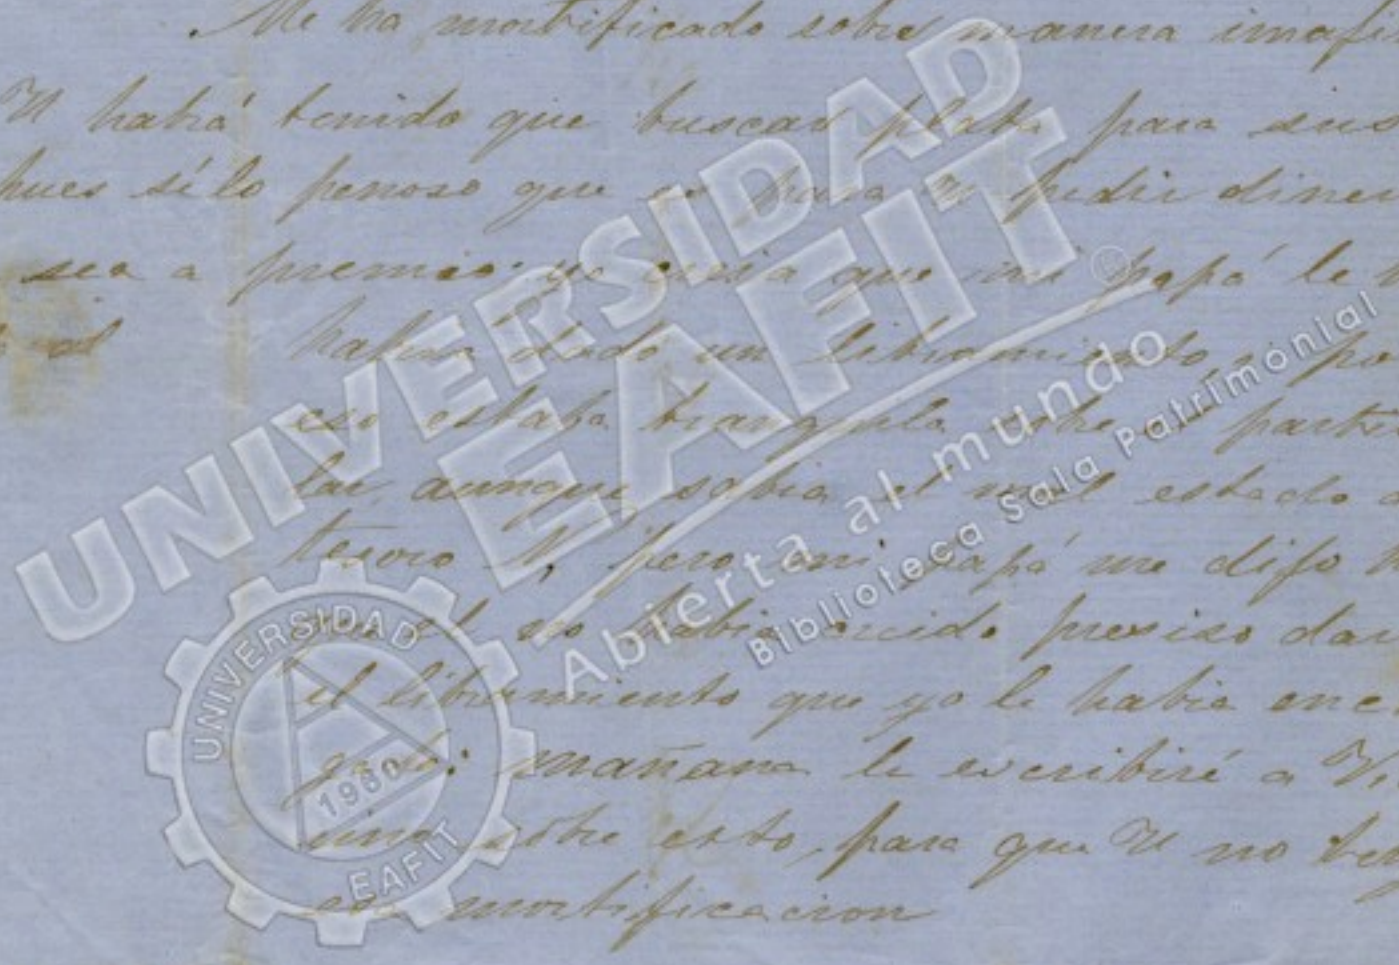 Me ha mortificado sobre manera imaji
U habrá tenido que buscar plata para sus
pues sé lo penoso que es para U pedir diner
sea a premio. yo creia que mi papá le
habia dado un libramiento, i po
eso estaba tranquila sobre el particu
lar, aunque sabia el mal estado
tesoro pero mi papá me dijo
no habia creido preciso dar
el libramiento que yo le habia enc
gado: mañana le escribiré a
sobre esto, para que U no ten
esa mortificacion
UNIVERSIDAD
EAFIT
Abierta al mundo
Biblioteca Sala Patrimonial
UNIVERSIDAD
1960
EAFIT